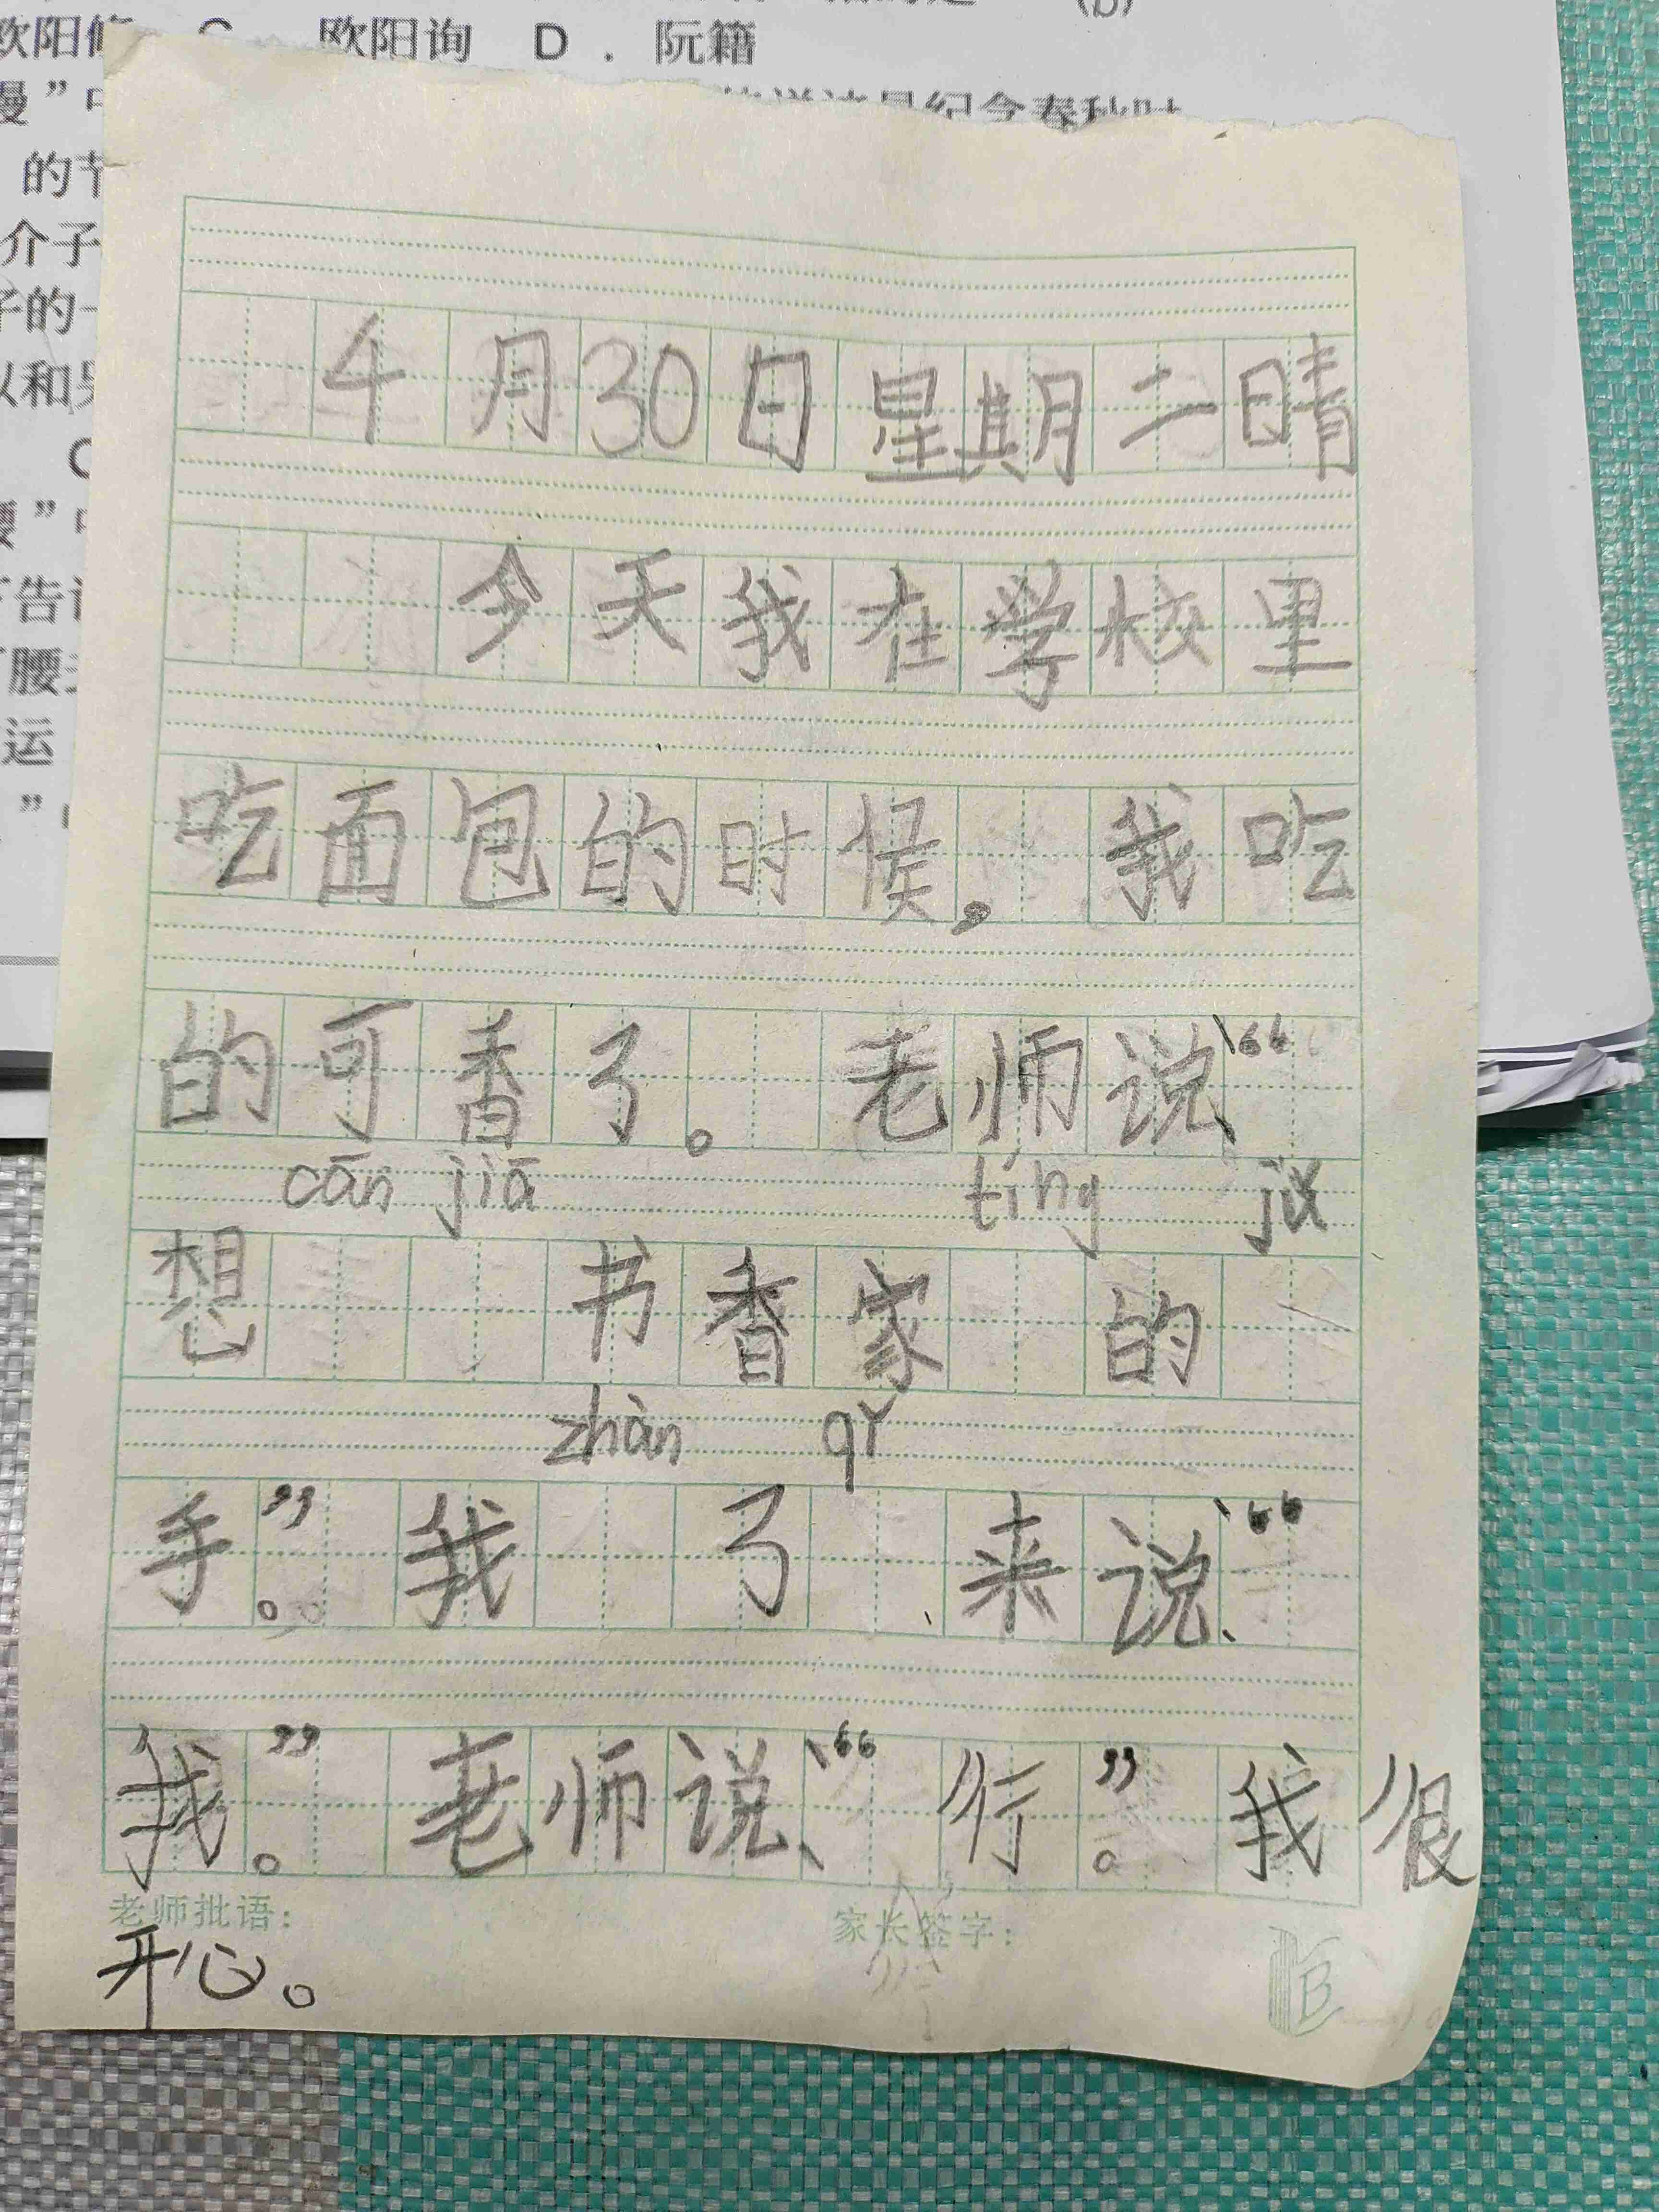 欧阳询 D . 阮籍
的节
介子
运
4月30日星期二晴
今天我在学校里
吃面包的时候,我吃
的可香了。老师说、“
cān jiā tíng jǔ
想 书香家 的
zhàn qǐ
手。”我 了 来说、“
我。”老师说、“行。”我很
老师批语: 家长签字:
开心。
B